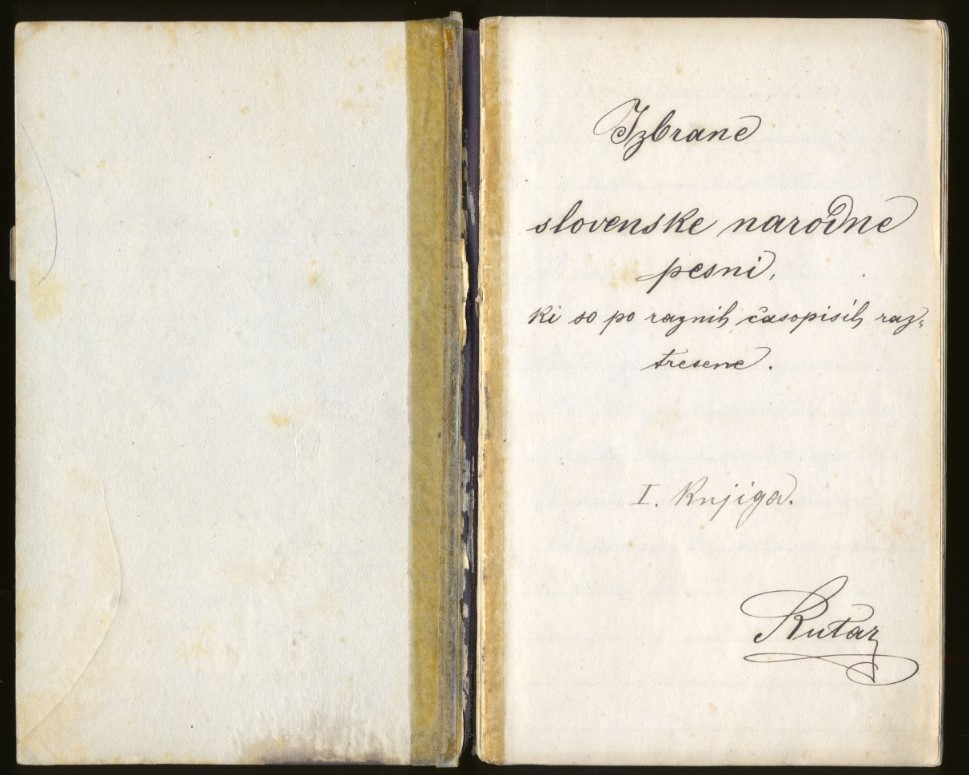 Izbrane
slovenske narodne
pesni,
ki so po raznih časopisih raz-
tresene.
I. Knjiga.
Rutar